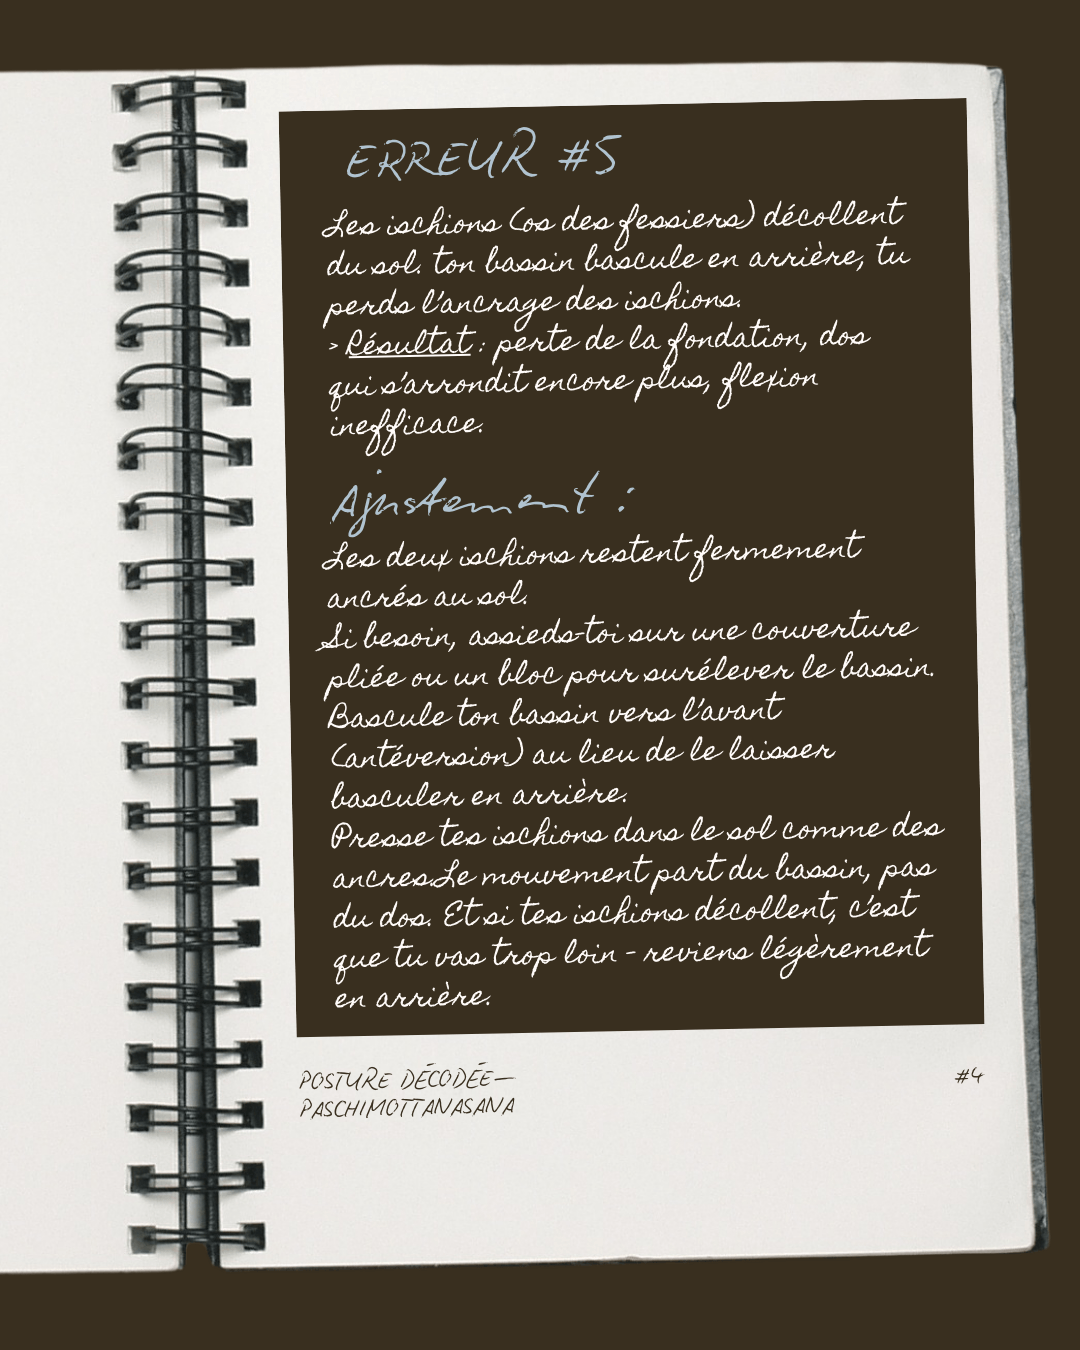 ERREUR #5
Les ischions (os des fessiers) décollent
du sol. ton bassin bascule en arrière, tu
perds l'ancrage des ischions.
> Résultat : perte de la fondation, dos
qui s'arrondit encore plus, flexion
inefficace.
Ajustement :
Les deux ischions restent fermement
ancrés au sol.
Si besoin, assieds-toi sur une couverture
pliée ou un bloc pour surélever le bassin.
Bascule ton bassin vers l'avant
(antéversion) au lieu de le laisser
basculer en arrière.
Presse tes ischions dans le sol comme des
ancres.Le mouvement part du bassin, pas
du dos. Et si tes ischions décollent, c'est
que tu vas trop loin - reviens légèrement
en arrière.
POSTURE DÉCODÉE—
PASCHIMOTTANASANA
#4